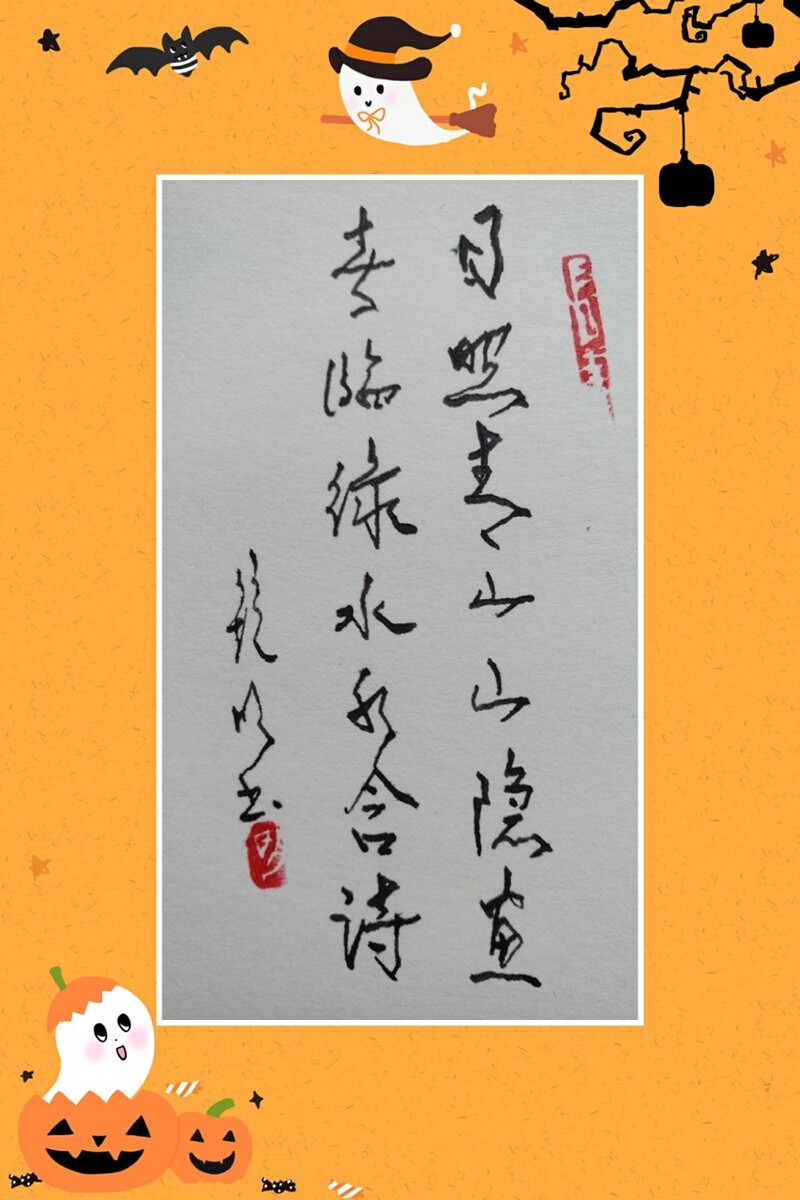 日照青山山隐画
春临绿水水含诗
书